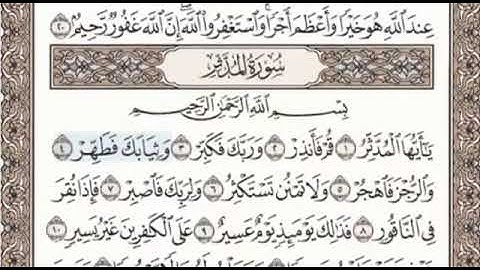 عِندَ ٱللَّهِ هُوَ خَيْرًا وَأَعْظَمَ أَجْرًا ۚ وَٱسْتَغْفِرُوا۟ ٱللَّهَ ۖ إِنَّ ٱللَّهَ غَفُورٌ رَّحِيمٌۢ ٢٠
سُورَةُ المُدَّثِّرِ
بِسْمِ ٱللَّهِ ٱلرَّحْمَٰنِ ٱلرَّحِيمِ
يَٰٓأَيُّهَا ٱلْمُدَّثِّرُ ١ قُمْ فَأَنذِرْ ٢ وَرَبَّكَ فَكَبِّرْ ٣ وَثِيَابَكَ فَطَهِّرْ ٤
وَٱلرُّجْزَ فَٱهْجُرْ ٥ وَلَا تَمْنُن تَسْتَكْثِرُ ٦ وَلِرَبِّكَ فَٱصْبِرْ ٧ فَإِذَا نُقِرَ
فِى ٱلنَّاقُورِ ٨ فَذَٰلِكَ يَوْمَئِذٍ يَوْمٌ عَسِيرٌ ٩ عَلَى ٱلْكَٰفِرِينَ غَيْرُ يَسِيرٍ ١٠